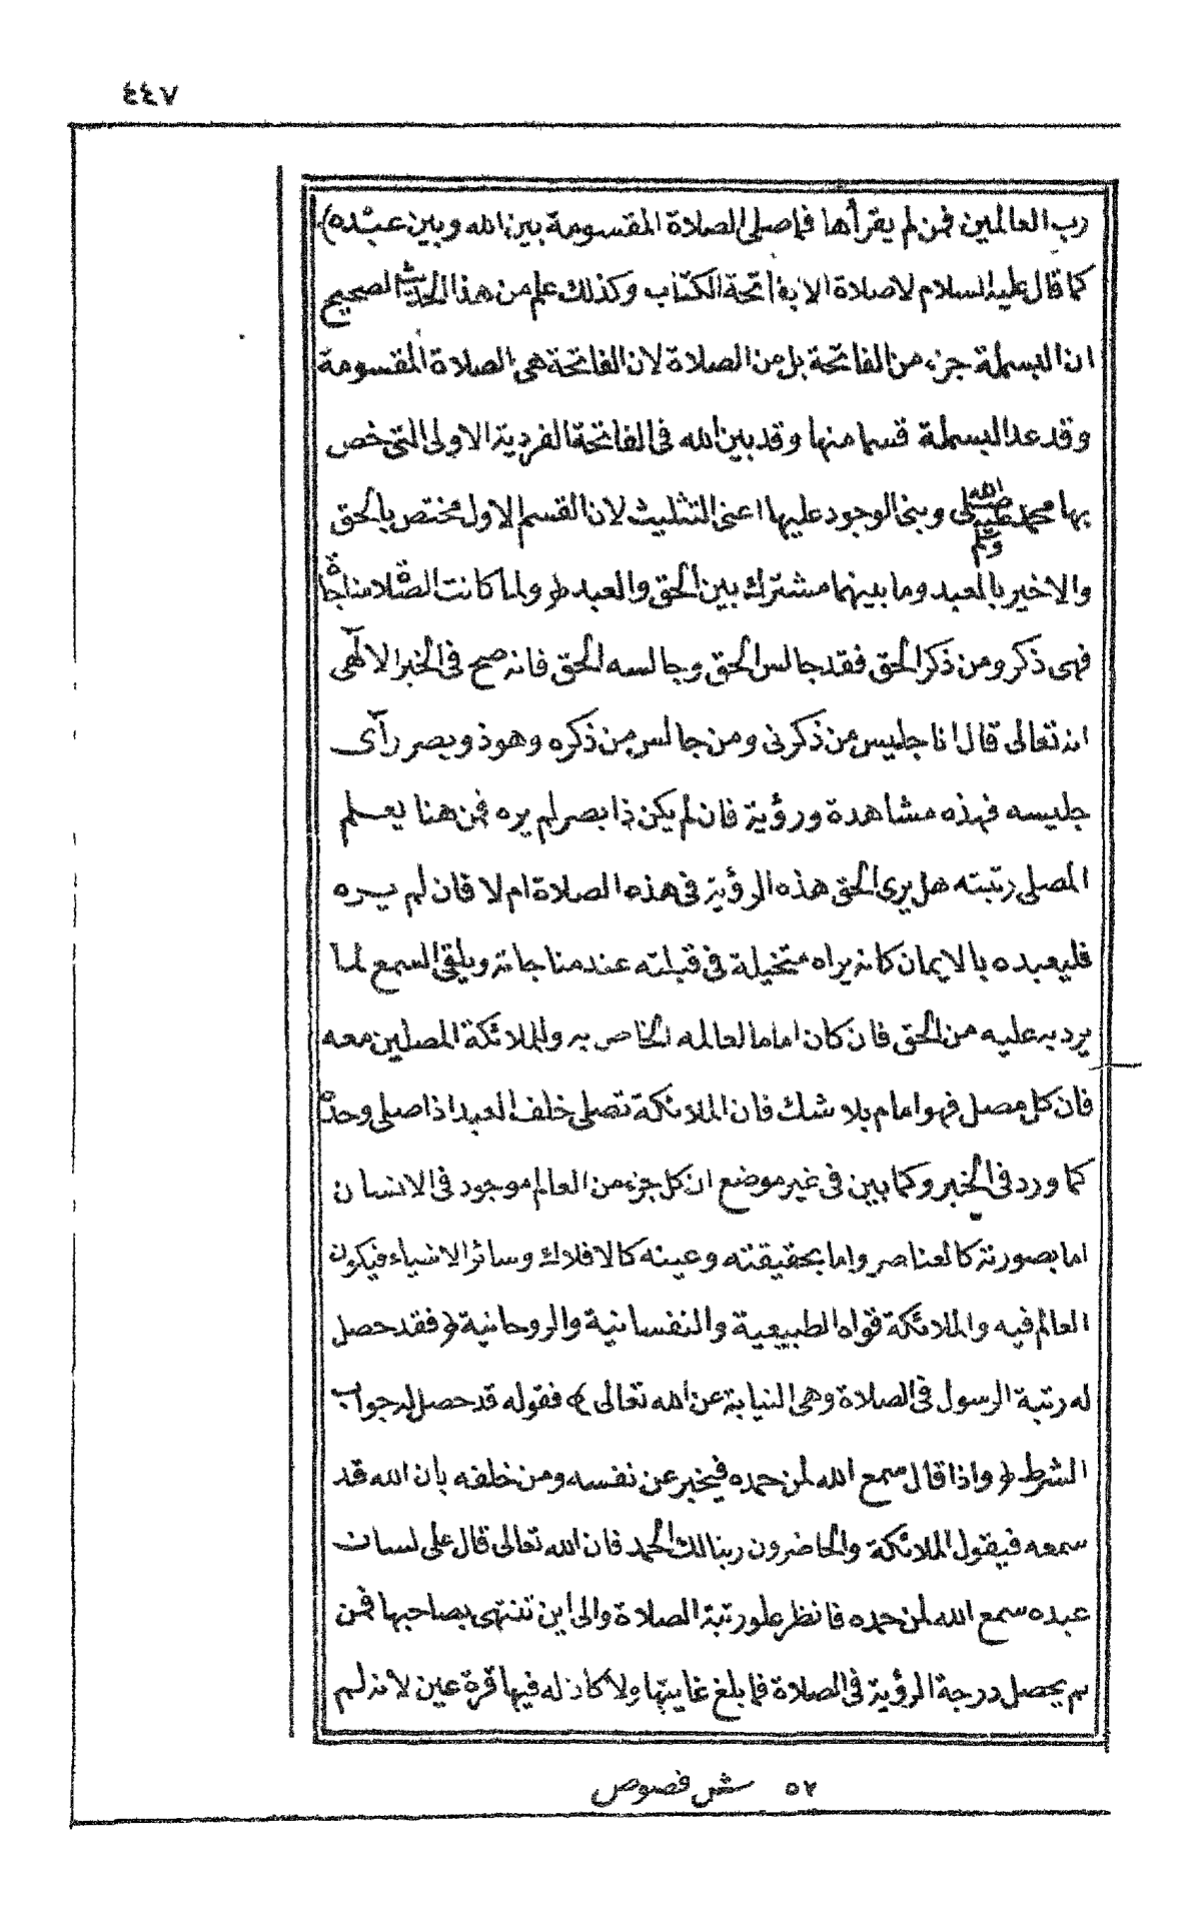 ٤٤٧
رب العالمين فمن لم يقرأها فما صلى الصلاة المقسومة بين الله وبين عبده)
كما قال عليه السلام لا صلاة الا بفاتحة الكتاب وكذلك علم من هذا الحديث الصحيح
ان البسملة جزء من الفاتحة بل من الصلاة لان الفاتحة هى الصلاة المقسومة
وقد عد البسملة قسما منها وقد بين الله فى الفاتحة الفردية الاولى التى خص
بها محمد صلى الله عليه وسلم وبنى الوجود عليها اعنى التثليث لان القسم الاول مختص بالحق
والاخير بالعبد وما بينهما مشترك بين الحق والعبد (ولما كانت الصلاة مناجاة
فهى ذكر ومن ذكر الحق فقد جالس الحق وجالسه الحق فانه صح فى الخبر الالهى
انه تعالى قال انا جليس من ذكرنى ومن جالس من ذكره وهو ذو بصر رآى
جليسه فهذه مشاهدة ورؤية فان لم يكن ذا بصر لم يره فمن هنا يعلم
المصلى رتبته هل يرى الحق هذه الرؤية فى هذه الصلاة ام لا فان لم يره
فليعبده بالايمان كانه يراه متخيلة فى قبلته عند مناجاته ويلقى السمع لما
يرد به عليه من الحق فان كان اماما لعالمه الخاص به وللملائكة المصلين معه
فان كل مصل فهو امام بلا شك فان الملائكة تصلى خلف العبد اذا صلى وحده
كما ورد فى الخبر وكما بين فى غير موضع ان كل جزء من العالم موجود فى الانسان
اما بصورته كالعناصر واما بحقيقته وعينه كالافلاك وسائر الاشياء فيكون
العالم فيه والملائكة قواه الطبيعية والنفسانية والروحانية (فقد حصل
له رتبة الرسول فى الصلاة وهى النيابة عن الله تعالى) فقوله قد حصل له جواب
الشرط (واذا قال سمع الله لمن حمده فيخبر عن نفسه ومن خلفه بان الله قد
سمعه فيقول الملائكة والحاضرون ربنا لك الحمد فان الله تعالى قال على لسان
عبده سمع الله لمن حمده فانظر علو رتبة الصلاة والى اين تنتهى بصاحبها فمن
لم يحصل درجة الرؤية فى الصلاة فما بلغ غايتها ولا كان له فيها قرة عين لانه لم
٥٢ شر فصوص